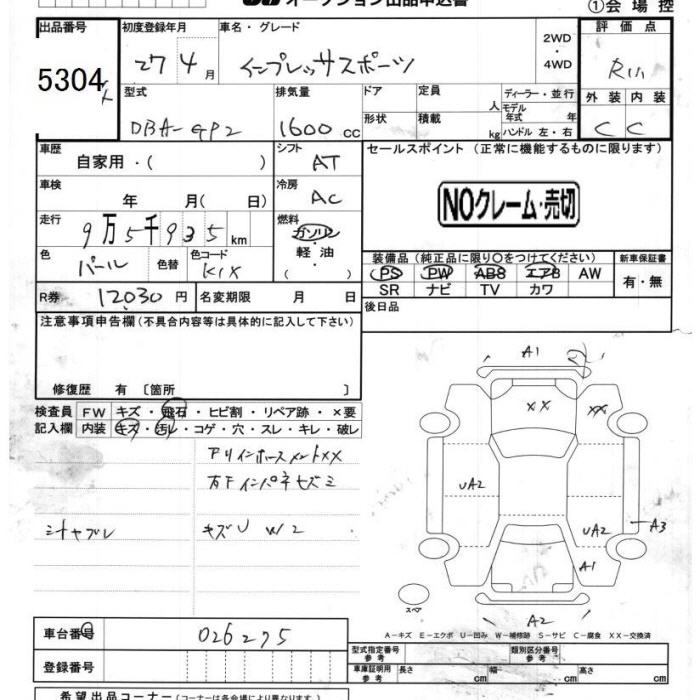 オークション出品申込書
①会場控
出品番号 初度登録年月 車名・グレード 2WD・4WD 評価点
5304 27年4月 インプレッサスポーツ R
型式 排気量 ドア 定員 人 ディーラー・並行 外装 内装
DBA-GP2 1600cc 形状 積載 kg モデル年式 年 ハンドル 左・右 C C
車歴 自家用・( ) シフト AT セールスポイント(正常に機能するものに限ります)
車検 年 月( 日) 冷房 AC
NOクレーム・売切
走行 9万5千935km 燃料 ガソリン
軽油
・( )
色 パール 色替 色コード K1X
装備品(純正品に限り○をつけてください) 新車保証書
PS PW ABS エアB AW 有・無
SR ナビ TV カワ
R券 12030円 名変期限 月 日 後日品
注意事項申告欄(不具合内容等は具体的に記入して下さい)
修復歴 有〔箇所 〕
検査員 FW キズ・飛石・ヒビ割・リペア跡・×要
記入欄 内装 キズ・汚レ・コゲ・穴・スレ・キレ・破レ
キズU W2
A1
XX XX
UA2
UA2 A3
A1
A2
スペア
A-キズ E-エクボ U-凹み W-補修跡 S-サビ C-腐食 XX-交換済
車台番号 026275
登録番号
型式指定番号 参考 類別区分番号 参考
車庫証明用 参考 長さ cm 幅 cm 高さ cm
希望出品コーナー(コーナーは各会場により異なります。)